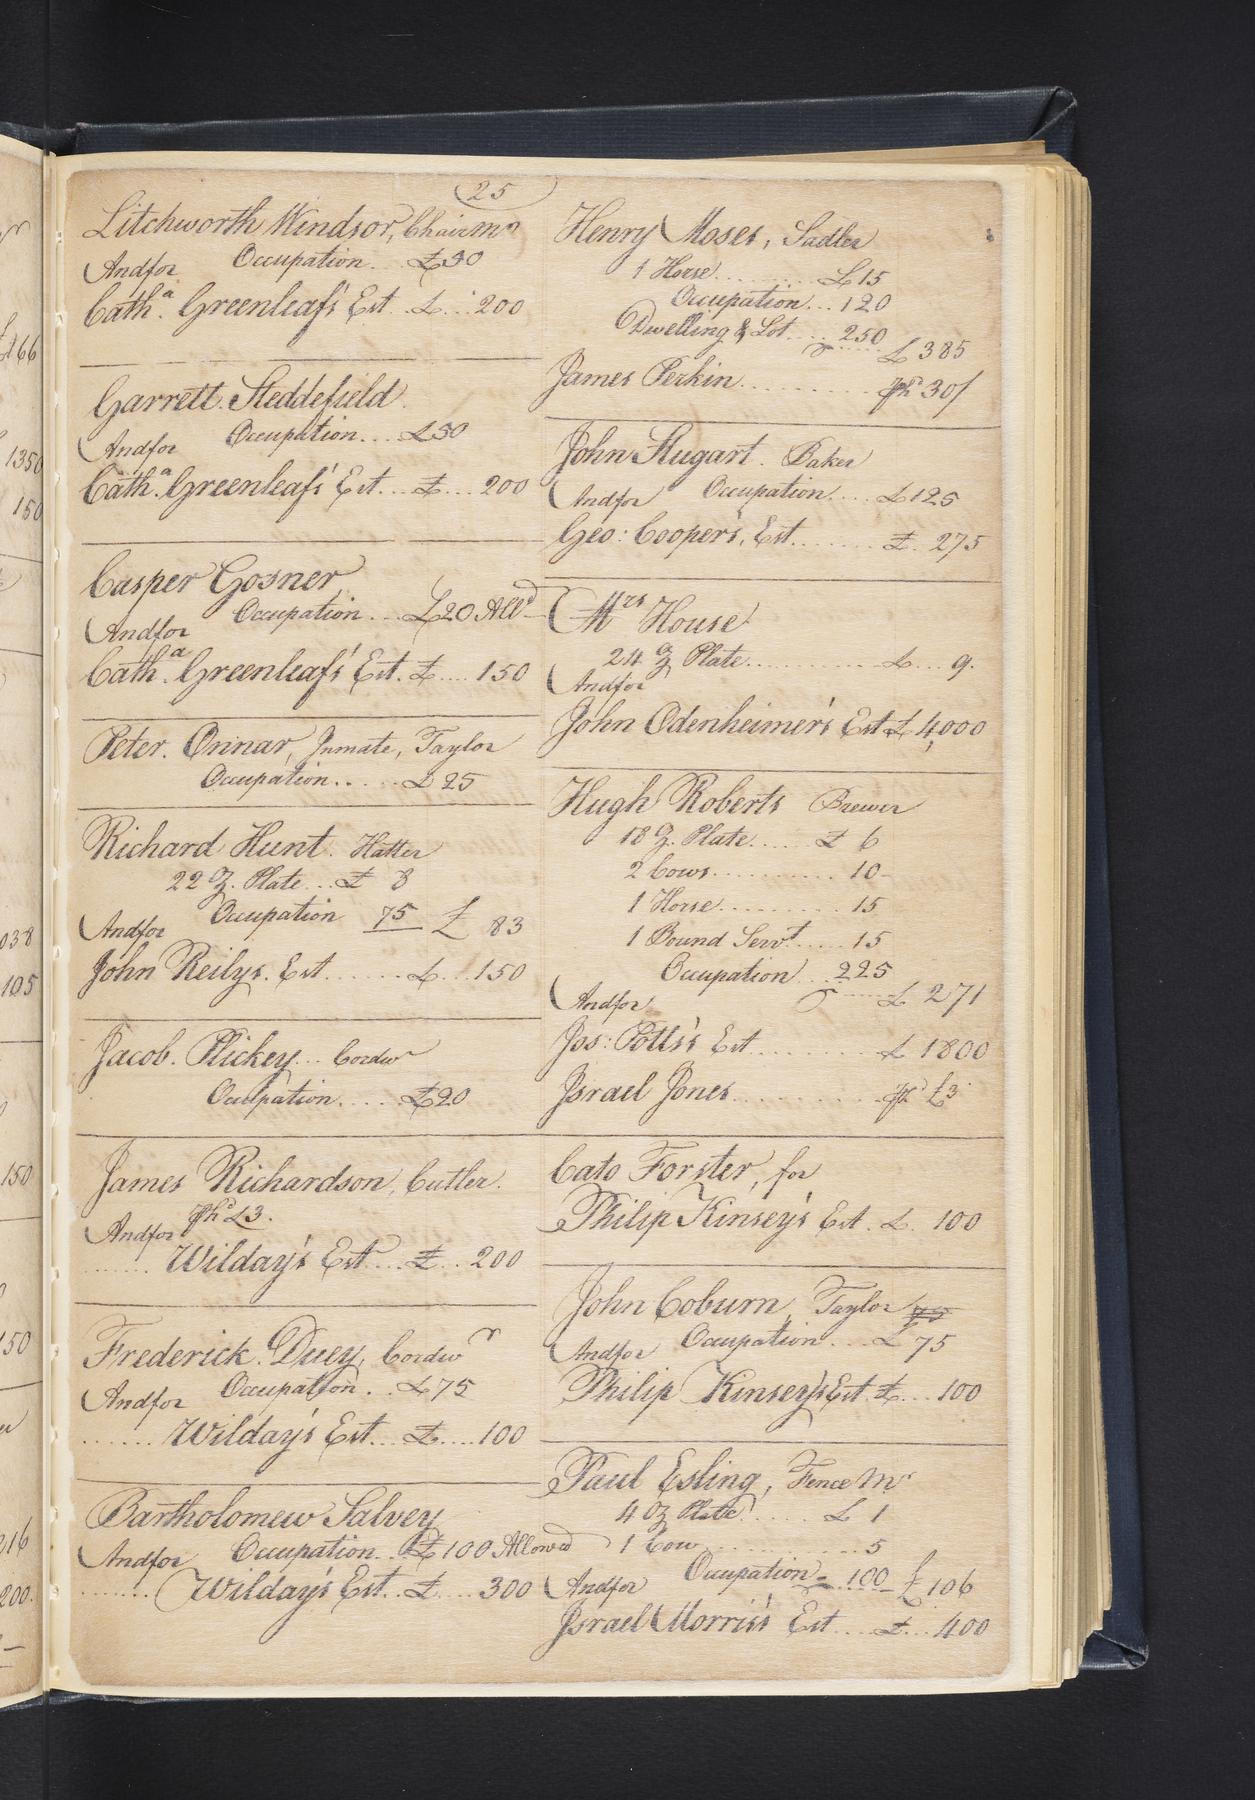 25
Litchworth Windsor, Chairmr
Occupation.. £30
Andfor
Catha. Greenleaf's Est.. £... 200
Garrett. Steddefield.
Occupation... £30
Andfor
Catha. Greenleaf's Est.... £... 200
Casper Gosner
Occupation... £20 Alld
Andfor
Catha. Greenleaf's Est. £.... 150
Peter. Onnar, Inmate, Taylor
Occupation...... £25
Richard Hunt. Hatter
22 Oz. Plate... £ 8
Occupation 75 £ 83
Andfor
John Reilys. Est....... £... 150
Jacob. Plickey... Cordwr
Occupation..... £20
James Richardson, Cutler.
Phd £3.
Andfor
....... Wilday's Est... £... 200
Frederick. Duey, Cordwr
Occupation.. £75
Andfor
....... Wilday's Est... £....100
Bartholomew Salvey
Occupation.. £100 Allowed
Andfor
....... Wilday's Est.. £.... 300
Henry Moses, Sadler
1 Horse............ £15
Occupation... 120
Dwelling & Lot..... 250
£ 385
James Perkin............. Phd 30/
John Flugart. Baker
Occupation.... £125
Andfor
Geo: Cooper's, Est........ £. 275
Mrs House
24 Oz Plate............. £... 9.
Andfor
John Odenheimer's Est £ 4,000
Hugh Roberts Brewer
18 Oz. Plate..... £ 6
2 Cows........... 10
1 Horse.......... 15
1 Bound Servt...... 15
Occupation... 225
£ 271
Andfor
Jos: Potts's Est.......... £ 1800
Israel Jones............. Phd £3
Cato Forster, for
Philip Kinsey's Est. £. 100
John Coburn, Taylor 75
Occupation.... £ 75
Andfor
Philip Kinsey's Est. £.... 100
Paul Esling, Fence Mr
4 Oz Plate....... £ 1
1 Cow............. 5
Occupation 100 £ 106
Andfor
Israel Morris's Est.... £... 400